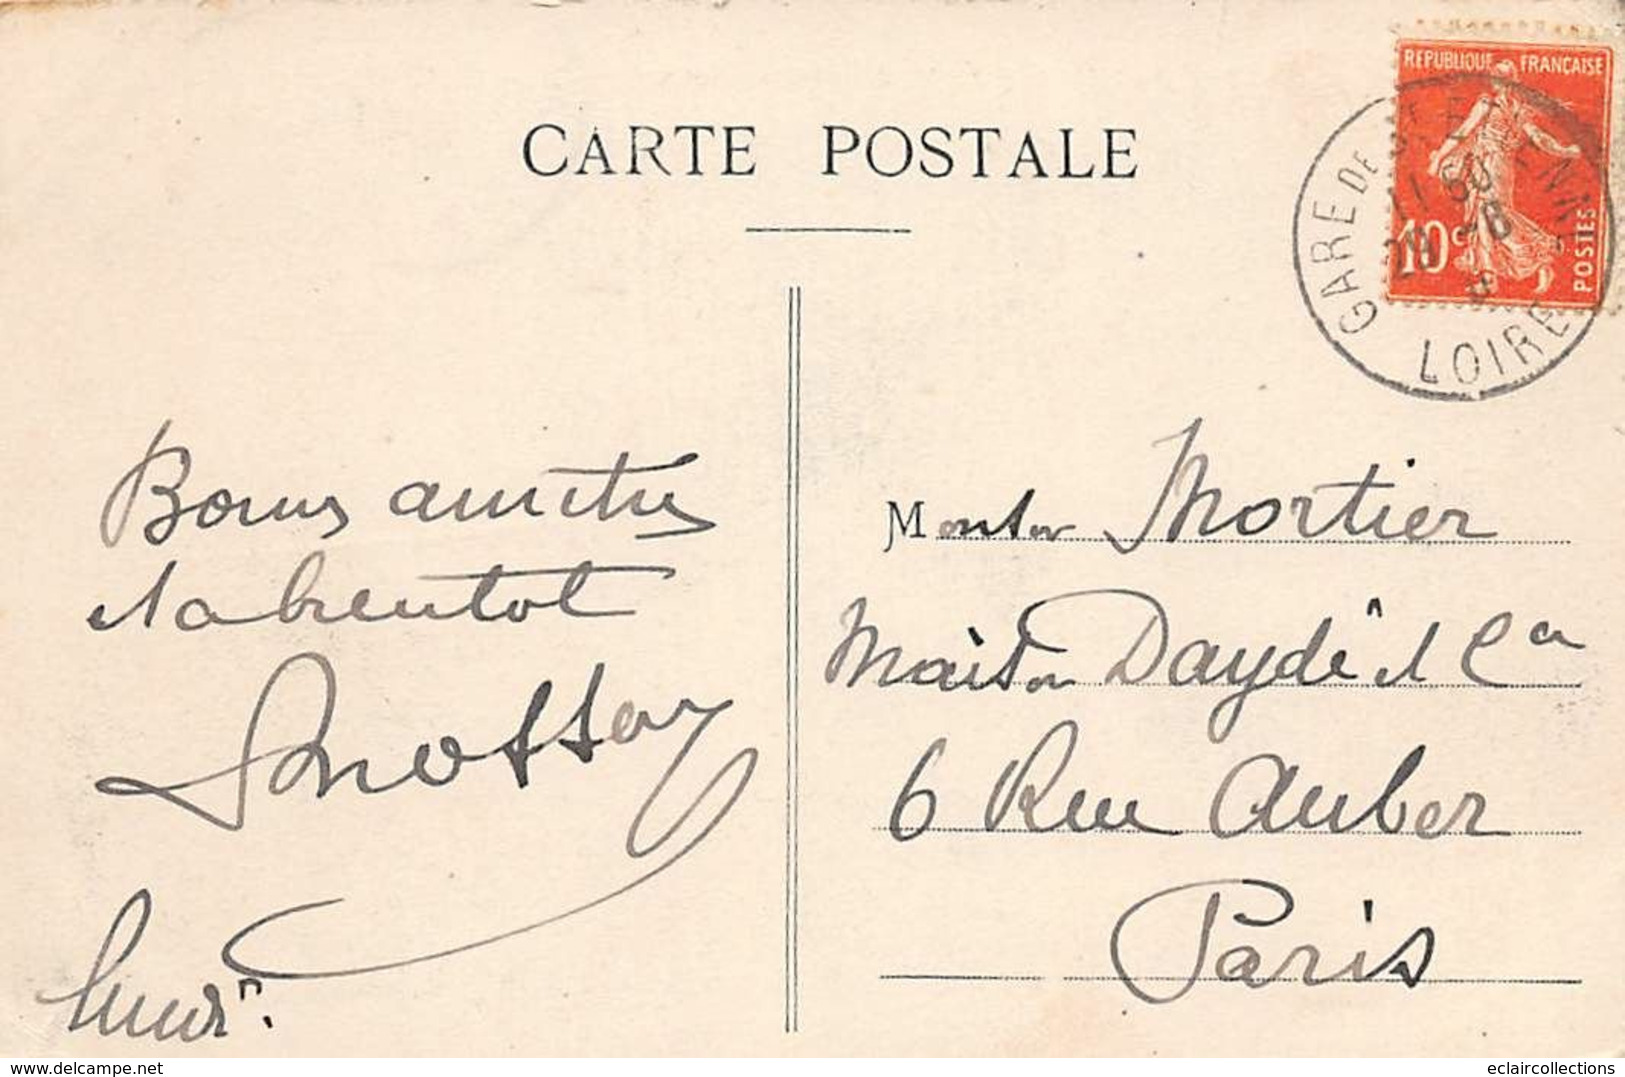 CARTE POSTALE
REPUBLIQUE FRANÇAISE
10c
POSTES
GARE DE ST ETIENNE
11 50
LOIRE
Bonnes amitiés
et a bientot
Monsieur Mortier
Maison Daydé et Cie
6 Rue Auber
Paris
www.delcampe.net
eclaircollections